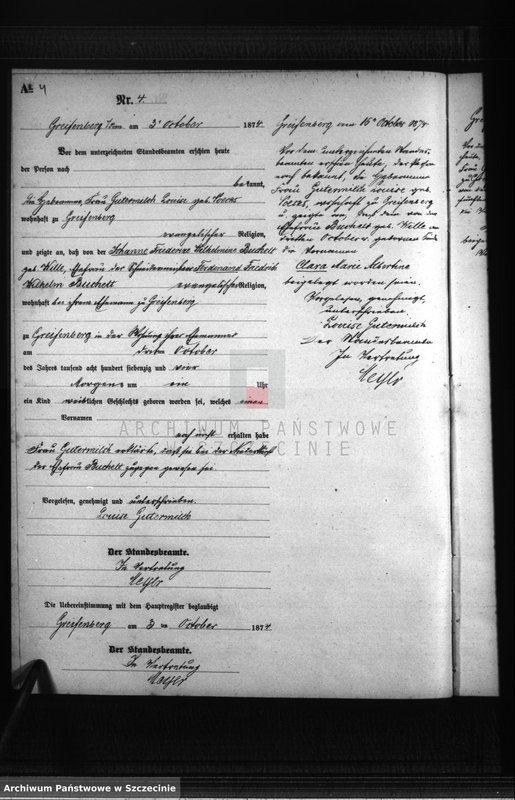 № 4
Nr. 4.
Greifenberg i/Pom. am 3t October 1874
Vor dem unterzeichneten Standesbeamten erschien heute
der Person nach
bekannt,
die Hebamme, Frau Gutermilch Louise geb.
wohnhaft zu Greifenberg
evangelischer Religion,
und zeigte an, daß von der Johanne Friederike Wilhelmine Buchelt
geb. Wille, Ehefrau des Ferdinand Friedrich
Wilhelm Buchelt evangelischer Religion,
wohnhaft bei ihrem Ehemann zu Greifenberg
zu Greifenberg in der Wohnung ihres Ehemannes
am dritten October
des Jahres tausend acht hundert siebenzig und vier
Morgens um ein Uhr
ein Kind weiblichen Geschlechts geboren worden sei, welches einen
Vornamen
noch nicht erhalten habe
Frau Gutermilch erklärte, daß sie bei der Niederkunft
der Ehefrau Buchelt zugegen gewesen sei.
Vorgelesen, genehmigt und unterschrieben.
Louise Gutermilch
Der Standesbeamte.
In Vertretung
Die Uebereinstimmung mit dem Hauptregister beglaubigt
Greifenberg am 3 ten October 1874
Der Standesbeamte.
In Vertretung
Greifenberg am 15t October 1874.
Vor dem unterzeichneten Standes-
beamten erschien heute, der Person
nach bekannt, die Hebamme
Frau Gutermilch Louise geb.
wohnhaft zu Greifenberg
u. zeigte an, daß dem von der
Ehefrau Buchelt geb. Wille am
dritten October geborenen Kinde
die Vornamen
Clara Marie Albertine
beigelegt worden seien.
Vorgelesen, genehmigt,
unterschrieben.
Louise Gutermilch
Der Standesbeamte
In Vertretung
ARCHIWUM PAŃSTWOWE
W SZCZECINIE
Archiwum Państwowe w Szczecinie